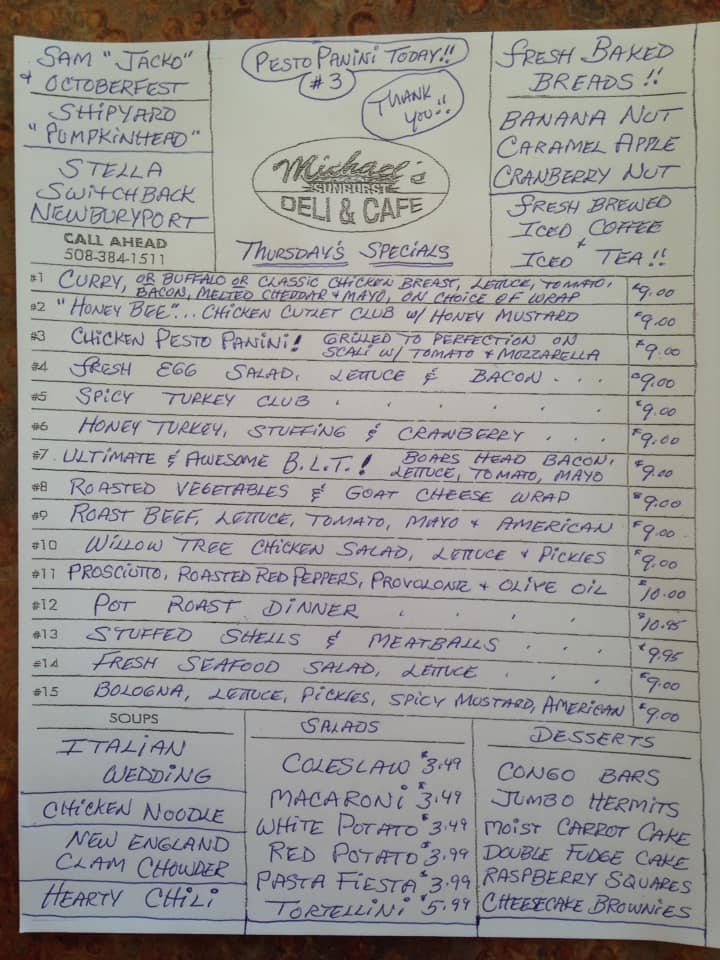 SAM "JACKO"
& OCTOBERFEST
SHIPYARD
"PUMPKINHEAD"
STELLA
SWITCHBACK
NEWBURYPORT
CALL AHEAD
508-384-1511
PESTO PANINI TODAY!!
#3
THANK
YOU!!
Michael's
SUNBURST
DELI & CAFE
THURSDAY'S SPECIALS
FRESH BAKED
BREADS!!
BANANA NUT
CARAMEL APPLE
CRANBERRY NUT
FRESH BREWED
ICED COFFEE
&
ICED TEA!!
#1 CURRY, OR BUFFALO OR CLASSIC CHICKEN BREAST, LETTUCE, TOMATO,
BACON, MELTED CHEDDAR & MAYO, ON CHOICE OF WRAP $9.00
#2 "HONEY BEE"... CHICKEN CUTLET CLUB W/ HONEY MUSTARD $9.00
#3 CHICKEN PESTO PANINI! GRILLED TO PERFECTION ON
SCALI W/ TOMATO & MOZZARELLA $9.00
#4 FRESH EGG SALAD, LETTUCE & BACON . . . $9.00
#5 SPICY TURKEY CLUB . . . . . $9.00
#6 HONEY TURKEY, STUFFING & CRANBERRY . . . $9.00
#7 ULTIMATE & AWESOME B.L.T.! BOARS HEAD BACON,
LETTUCE, TOMATO, MAYO $9.00
#8 ROASTED VEGETABLES & GOAT CHEESE WRAP $9.00
#9 ROAST BEEF, LETTUCE, TOMATO, MAYO & AMERICAN $9.00
#10 WILLOW TREE CHICKEN SALAD, LETTUCE & PICKLES $9.00
#11 PROSCIUTTO, ROASTED RED PEPPERS, PROVOLONE & OLIVE OIL $10.00
#12 POT ROAST DINNER . . . . $10.95
#13 STUFFED SHELLS & MEATBALLS . . . $9.95
#14 FRESH SEAFOOD SALAD, LETTUCE . . . $9.00
#15 BOLOGNA, LETTUCE, PICKLES, SPICY MUSTARD, AMERICAN $9.00
SOUPS
ITALIAN
WEDDING
CHICKEN NOODLE
NEW ENGLAND
CLAM CHOWDER
HEARTY CHILI
SALADS
COLESLAW $3.49
MACARONI $3.49
WHITE POTATO $3.49
RED POTATO $3.99
PASTA FIESTA $3.99
TORTELLINI $5.99
DESSERTS
CONGO BARS
JUMBO HERMITS
MOIST CARROT CAKE
DOUBLE FUDGE CAKE
RASPBERRY SQUARES
CHEESECAKE BROWNIES